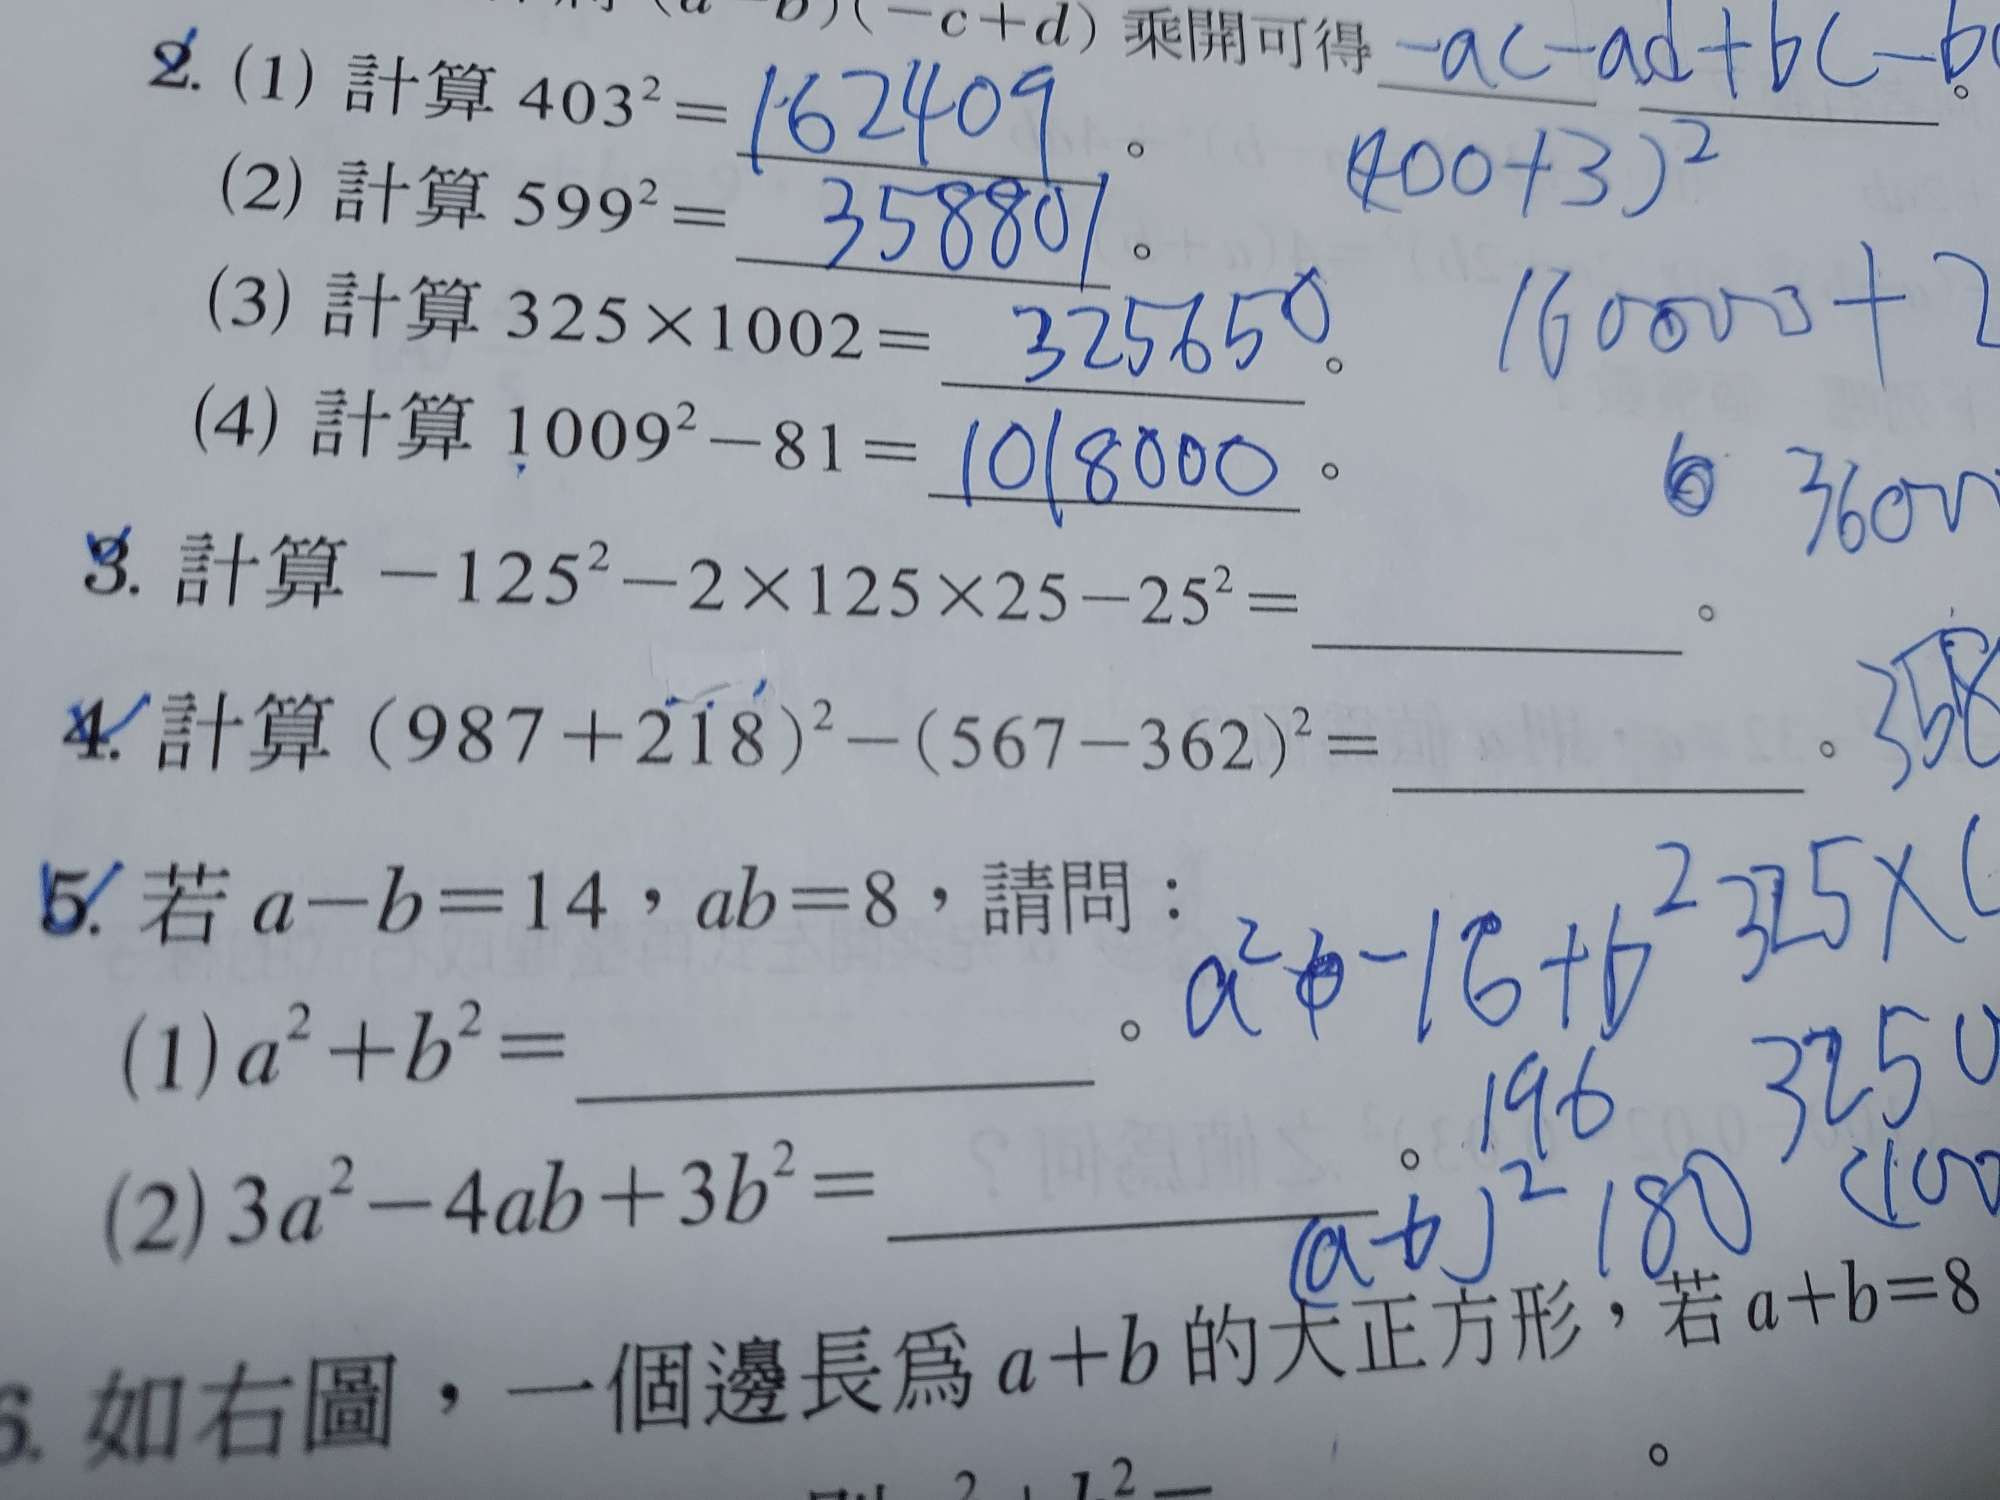 (−c+d) 乘開可得 −ac−ad+bc−b
2. (1) 計算 403²=162409。
(400+3)²
(2) 計算 599²=358801。
(3) 計算 325×1002=325650。
160000+2
(4) 計算 1009²−81=1018000。
3. 計算 −125²−2×125×25−25²=。
4. 計算 (987+218)²−(567−362)²=。
358
5. 若 a−b=14，ab=8，請問：
325×(
(1) a²+b²=。
a² −16+b²
196
3250
(2) 3a²−4ab+3b²=。
(a−b)² 180
(100
6. 如右圖，一個邊長為 a+b 的大正方形，若 a+b=8
。